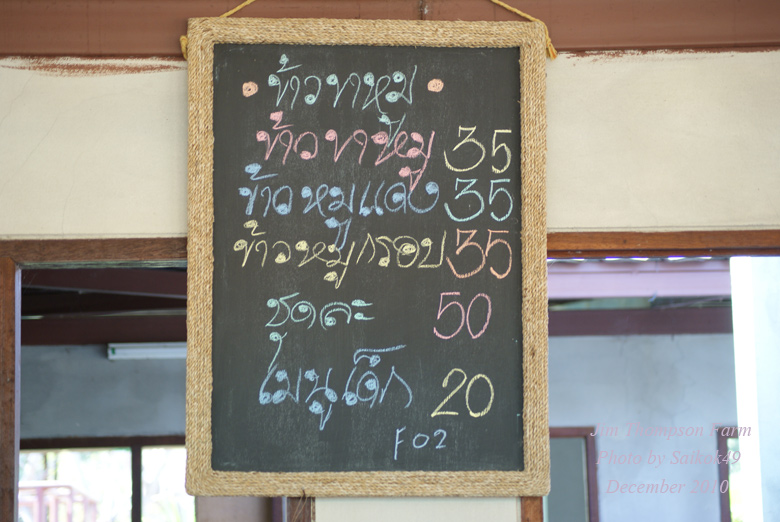 • ข้าวขาหมู •
ข้าวขาหมู 35
ข้าวหมูแดง 35
ข้าวหมูกรอบ 35
ชุดละ 50
เมนูเด็ก 20
F02
Jim Thompson Farm
Photo by Saikok49
December 2010